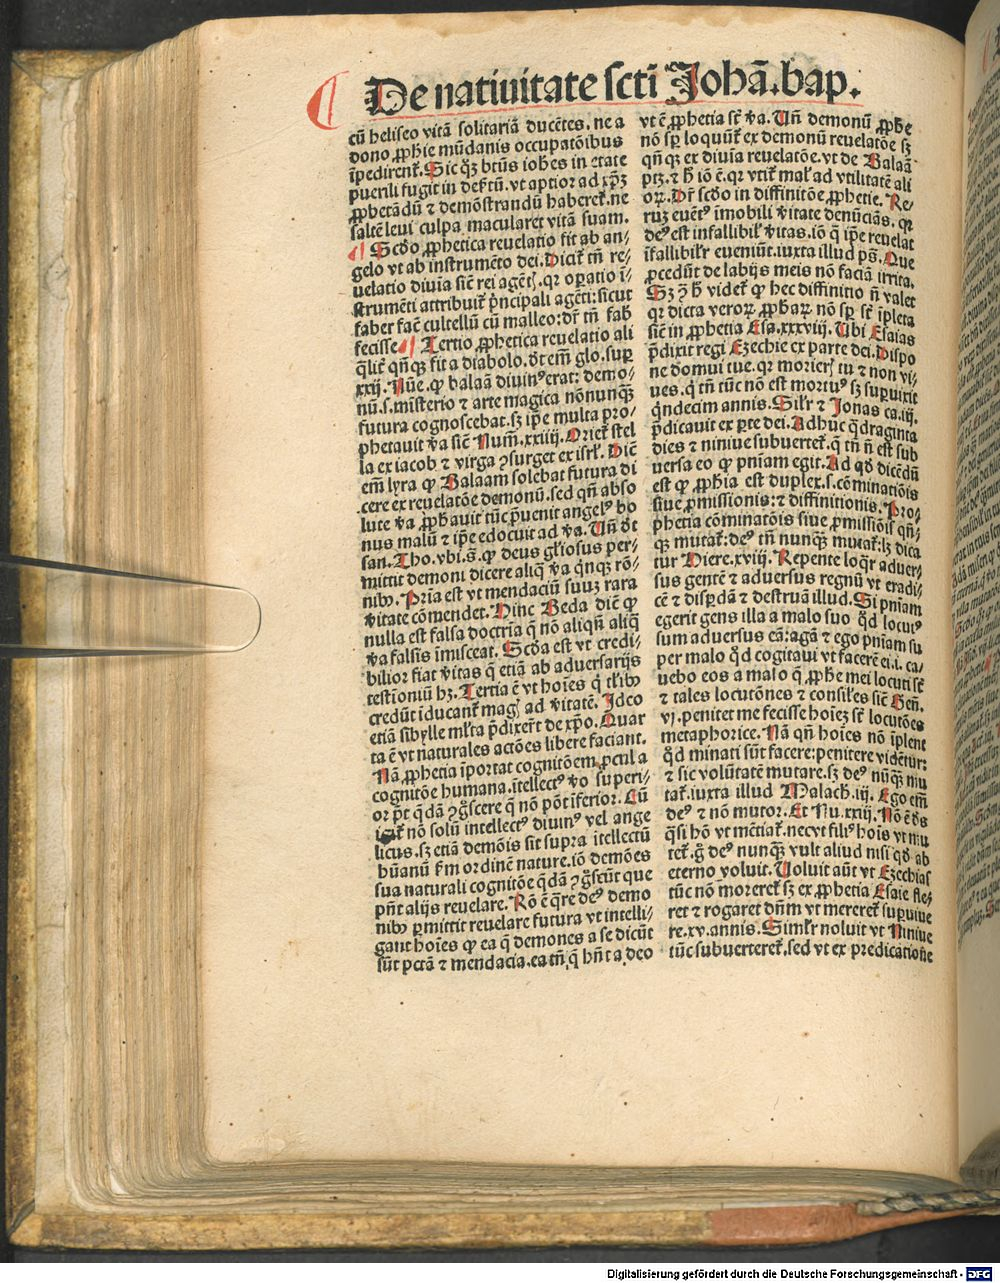 De natiuitate scti Johā.bap.
cū heliseo vitā solitariā ducētes, ne a
dono ꝓphie mūdanis occupatōibus
īpedirent᷑. Sic qꝫ btūs iohes in etate
puerili fugit in def tū. vt aptior ad xp̄ꝫ
ꝓphetādū ⁊ demōstrandū haberet᷑. ne
saltē leui culpa macularet vitā suam.
¶ Scd̄o ꝓphetica reuelatio fit ab an⸗
gelo vt ab instrumēto dei. Dicit᷑ tn̄ re⸗
uelatio diuīa sic̄ rei agēti. qr oꝑatio ī⸗
strumēti attribuit᷑ pͥncipali agēti: sicut
faber fac̄ cultellū cū malleo: dr̄ tn̄ fab
fecisse ¶ Tertio ꝓphetica reuelatio ali
q̄lit᷑ qn̄qꝫ fit a diabolo. d̄t em̄ glo. suꝑ
xxij. Nūe. ꝙ balaā diuinꝰ erat: demo⸗
nū .s. mīsterio ⁊ arte magica nōnunqꝫ̄
futura cognoscebat. sꝫ ip̄e multa pro⸗
phetauit v̄a sic̄ Num̄. xxiiij. Oriet᷑ stel
la ex iacob ⁊ virga ꝯsurget ex isrl᷑. Dic̄
em̄ lyra ꝙ Balaam solebat futura di
cere ex reuelatōe demonū. sed qn̄ abso
lute v̄a ꝓphauit tūc p̄uenit angelꝰ bo
nus malū ⁊ ip̄e edocuit ad v̄a. Vn̄ d̄t
san. Tho. vbi .s. ꝙ deus gl̄iosus per⸗
mittit demoni dicere aliq̄ v̄a qͥnqꝫ rō⸗
nibꝰ. Pͥia est vt mendaciū suuꝫ rara
v̄itate cōmendet. Hinc Beda dic̄ ꝙ
nulla est falsa doctrīa q̄ nō aliqn̄ aliq̄
v̄a falsis īmisceat. Scd̄a est vt credi⸗
bilior fiat v̄itas q̄ etiā ab aduersarijs
testioniū hꝫ. Tertia ē vt hoīes qͥ tl̄ibꝰ
credūt īducant᷑ magꝭ ad v̄itatē. Ideo
etiā sibylle ml̄ta p̄dixer̄t de xp̄o. Quar
ta ē vt naturales actōes libere faciant.
Nā ꝓphetia īportat cognitōem ꝓcul a
cognitōe humana. ītellectꝰ v̄o superi⸗
or pt̄ qͥdā ꝯgͦscere q̄ nō pōt īferior. Cū
igit᷑ nō solū intellectꝰ diuinꝰ vel ange
licus. sꝫ etiā demōis sit supra ītellectū
hūanū ẜm ordinē nature. iō demōes
sua naturali cognitōe q̄dā ꝯgͦscūt que
pn̄t alijs reuelare. Rō ē q̄re deꝰ demo
nibꝰ ꝑmittit reuelare futura vt intelli⸗
gant hoīes ꝙ ea q̄ demones a se dicūt
sūt pctā ⁊ mendacia. ea tn̄ q̄ hn̄t a deo
vt ē ꝓphetia st̄ v̄a. Vn̄ demonū ꝓphe
nō sꝑ loquūt᷑ ex demonū reuelatōe sꝫ
qn̄qꝫ ex diuīa reuelatōe. vt de Balaā
ptꝫ. ⁊ h̄ iō ē. qr vtit᷑ mal᷑ ad vtilitatē ali
oꝝ. Dr̄ scd̄o in diffinitōe ꝓphetie. Re⸗
ruꝫ euētꝰ īmobili v̄itate denūciās. qr
deꝰ est infallibil᷑ v̄itas. iō q̄ ip̄e reuelat
īfallibil᷑r eueniūt. iuxta illud pꝭ. Que
ꝓcedūt de labijs meis nō faciā irrita.
Sꝫ ꝯ h̄ videt᷑ ꝙ hec diffinitio n̄ valet
qr dicta veroꝝ ꝓphaꝝ nō sꝑ st̄ īpleta
sic̄ in ꝓphetia Esa. xxxviij. Vbi Esaias
p̄dixit regi Ezechie ex parte dei. Dispo
ne domui tue. qr morierꝭ tu ⁊ non vi⸗
ues. q̄ tn̄ tūc nō est mortuꝰ sꝫ suꝑuixit
qͥndecim annis. Sil᷑r ⁊ Jonas ca. iij.
p̄dicauit ex ꝑte dei. Adhuc q̄draginta
dies ⁊ niniue subuertet᷑. q̄ tn̄ n̄ est sub
uersa eo ꝙ pn̄iam egit. Ad qd̄ dicēdū
est ꝙ ꝓphia est duplex .s. cōminatiōis
siue ꝓmissionis: ⁊ diffinitionis. Pro⸗
phetia cōminatōis siue ꝓmissiōis qn̄⸗
qꝫ mutat᷑: deꝰ tn̄ nunqꝫ̄ mutat᷑: lꝫ dica
tur Hiere. xviij. Repente loqr̄ aduer⸗
sus gentē ⁊ aduersus regnū vt eradi⸗
cē ⁊ disꝑdā ⁊ destruā illud. Si pn̄iam
egerit gens illa a malo suo qd̄ locutꝰ
sum aduersus eā: agā ⁊ ego pn̄iam su
per malo qd̄ cogitaui vt facerē ei .i. ca⸗
uebo eos a malo q̄ ꝓphe mei locuti st̄
⁊ tales locutōnes ⁊ consiles sic̄ Gen̄.
vj. penitet me fecisse hoīeꝫ st̄ locutōes
metaphorice. Nā qn̄ hoīes nō īplent
qd̄ minati sūt facere: penitere vident᷑:
⁊ sic volūtatē mutare. sꝫ deꝰ nūqꝫ̄ mu
tat᷑. iuxta illud Malach. iij. Ego em̄
deꝰ ⁊ nō mutor. Et Nu. xxiij. Nō ē d̄s
q̄si hō vt mētiat᷑. nec vt filiꝰ hoīs vt mu
tet᷑. gͦ deꝰ nunqꝫ̄ vult aliud nisi qd̄ ab
eterno voluit. Voluit aūt vt Ezechias
tūc nō moreret᷑ sꝫ ex ꝓphetia Esaie fle⸗
ret ⁊ rogaret dn̄m vt mereret᷑ suꝑuiue
re. xv. annis. Simil᷑r noluit vt Niniue
tūc subuerteret᷑. sed vt ex predicatione
Digitalisierung gefördert durch die Deutsche Forschungsgemeinschaft - DFG